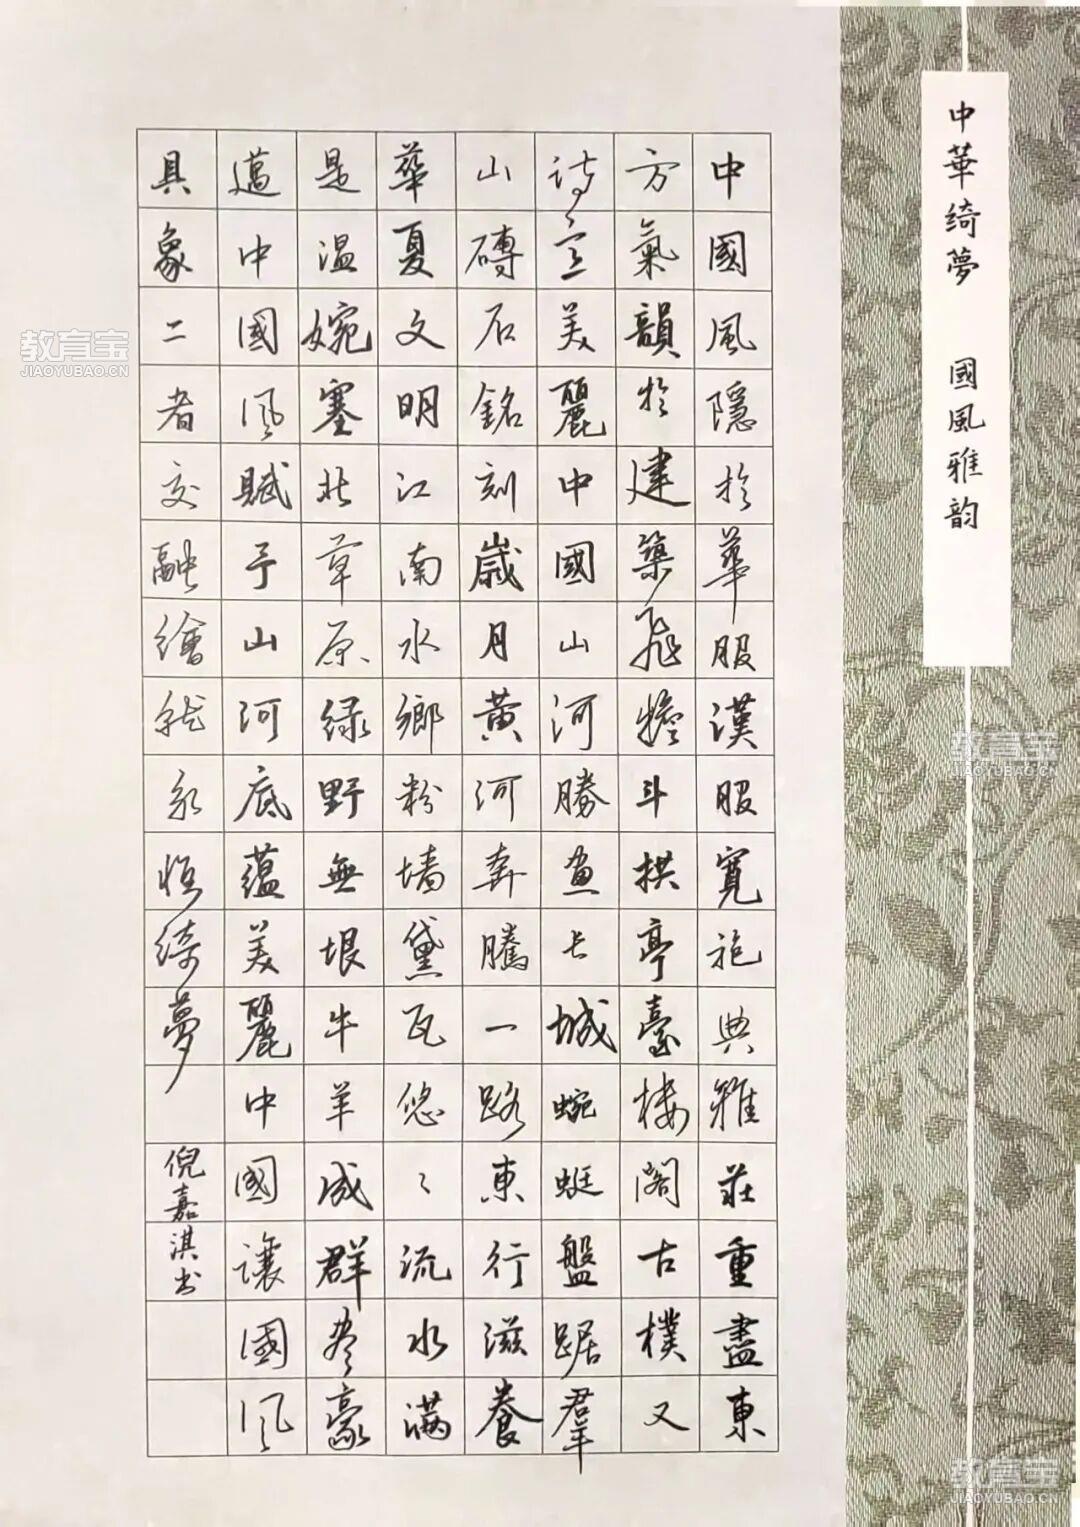 中華綺夢　國風雅韵
中國風隱於華服漢服寬袍典雅莊重盡東
方氣韻於建築飛檐斗拱亭臺樓閣古樸又
詩意美麗中國山河勝畫長城蜿蜒盤踞羣
山磚石銘刻歲月黃河奔騰一路東行滋養
華夏文明江南水鄉粉墻黛瓦悠〻流水滿
是温婉塞北草原绿野無垠牛羊成群盡豪
邁中國風賦予山河底蘊美麗中國讓國風
具象二者交融繪就永恒綺夢
倪嘉淇书
教育宝
JIAOYUBAO.CN
教育宝
JIAOYUBAO.CN
教育宝
JIAOYUBAO.CN